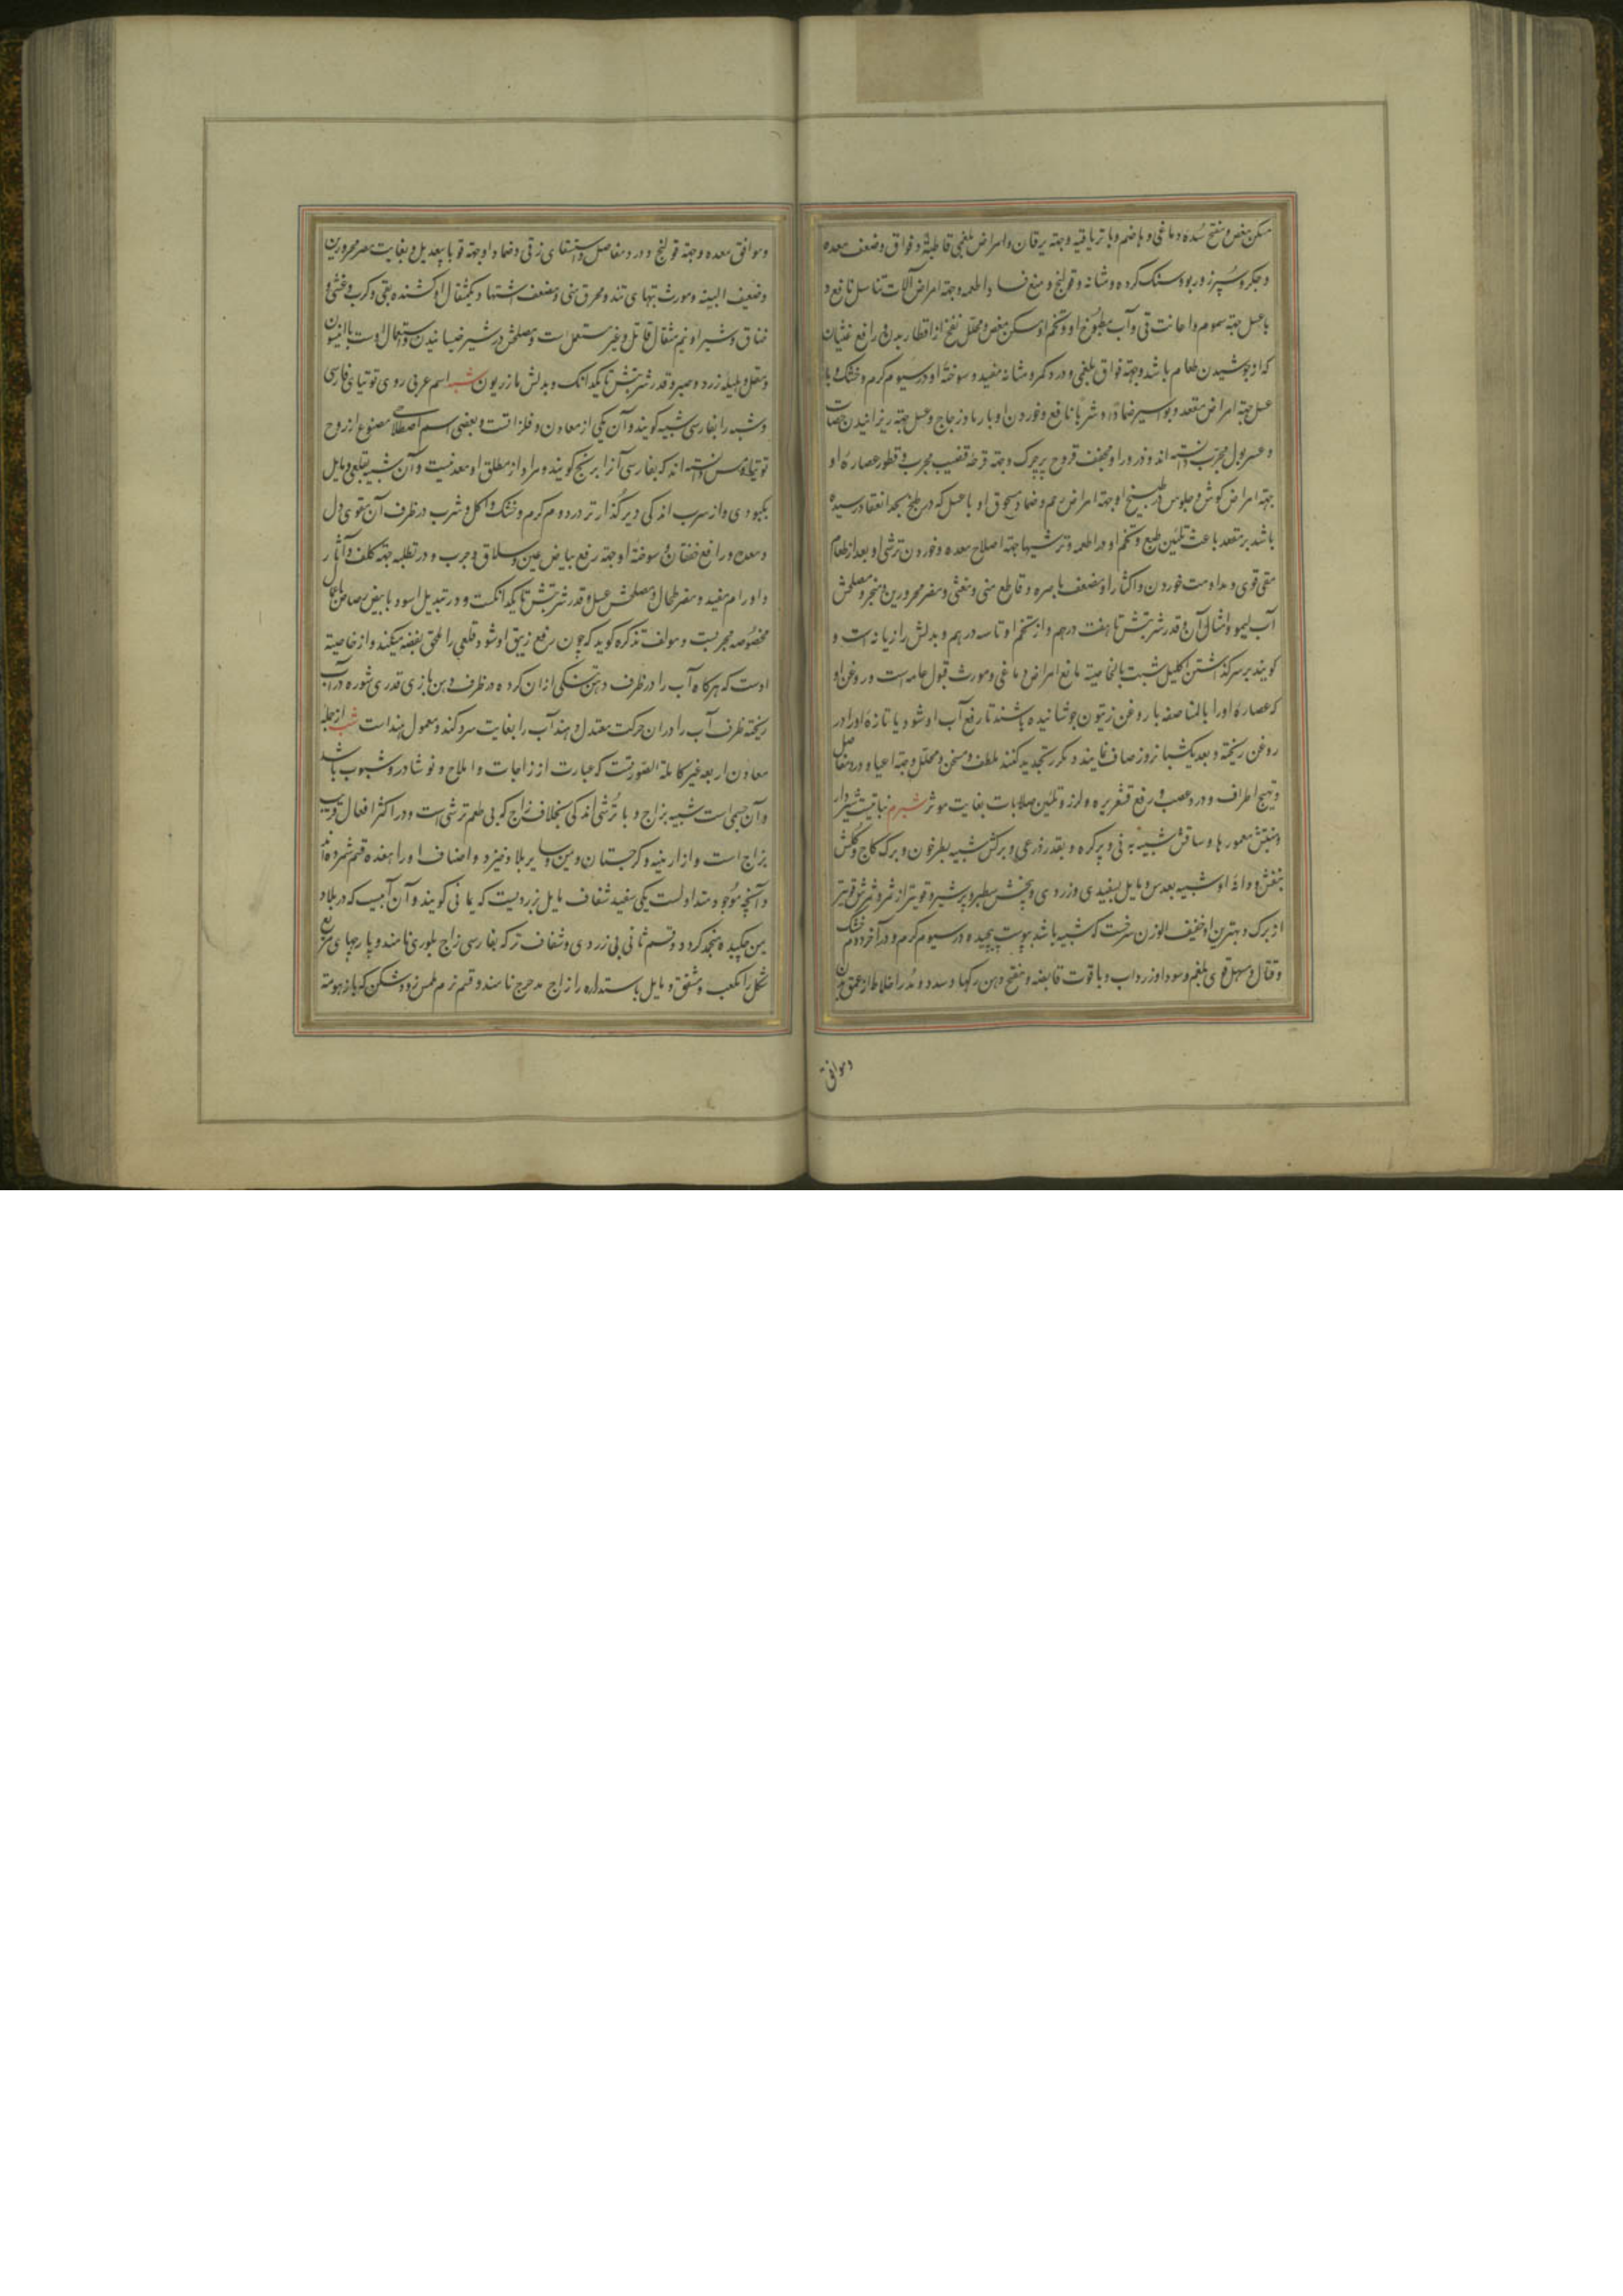 مسکن مغص و مفتح سدهٔ دماغی و هاضم و با تریاقیه و جهة یرقان و امراض بلغمی قاطبةً و فواق و ضعف معده
و جکر و سپرز و ربو و سنک کرده و مثانه و قولنج و منع فساد اطعمه و جهة امراض آلات تناسل نافع و
با عسل جهة سموم و اعانت قی و آب مطبوخ او و تخم او مسکن مغص و محلل نفخ از اقطار بدن و رافع غثیان
که از جوشیدن طعام باشد و جهة فواق بلغمی و درد کمر و مثانه مفید و سوختهٔ او در سیوم کرم و خشک و با
عسل جهة امراض مقعد و بواسیر ضماداً و شرباً نافع و خوردن او با رماد زجاج و عسل جهة ریزانیدن حصات
و عسر بول مجرب دانسته اند و ذرور او مجفف قروح پرچرک و جهة قرحه قضیب مجرب و قطور عصارهٔ او
جهة امراض کوش و جلوس در طبیخ او جهة امراض رحم و ضماد مسحوق او با عسل که در طبخ بحد انعقاد رسیده
باشد بر مقعد باعث تلیین طبع و تخم او در اطعمه و ترشیها جهة اصلاح معده و خوردن ترشی او بعد از طعام
مقی قوی و مداومت خوردن و اکثار او مضعف باصره و قاطع منی و مغثی و مضر محرورین و مبخر و مصلحش
آب لیمو و امثال آن و قدر شربتش تا هفت درهم و از تخم او تا سه درهم و بدلش رازیانه است و
کویند بر سر کذاشتن اکلیل شبت بالخاصیة مانع امراض دماغی و مورث قبول عامه است و روغن او
که عصاره او را بالمناصفه با روغن زیتون جوشانیده باشند تا رفع آب او شود یا تازهٔ او را در
روغن ریخته و بعد یکشبانروز صاف نمایند و مکرر تجدید کنند ملطف و مسخن و محلل و جهة اعیا و درد مفاصل
و تهیج اطراف و درد عصب و رفع قشعریره و لرز و تلیین صلابات بغایت موثر شبرم نباتیست شیردار
و منبتش معمورها و ساقش شبیه به نی و پرکره و بقدر ذرعی و برکش شبیه بطرخون و برک کاج و کلش
بنفش و دانهٔ او شبیه بعدس و مایل بسفیدی و زردی و بیخش سطبر و پرشیر و قویتر از ثمر و ثمرش قویتر
از برک و بهترین او خفیف الوزن سرخست که شبیه باشد بپوست پیچیده در سیوم کرم و در آخر دوم خشک
و قتال و مسهل قوی بلغم و سودا و زرداب و با قوت قابضه و مفتح دهن رکها و سدد و مدر اخلاط از عمق بدن
و موافق
و موافق معده و جهة قولنج و درد مفاصل و استسقای زقی و ضماد او جهة قوبا بیعدیل و بغایت مضر محرورین
و ضعیف البنیه و مورث تبهای تند و محرق منی و مضعف اشتها و یکمثقال او کشنده بقی و کرب و غشی و
خناق و شیر او نیم مثقال قاتل و غیر مستعمل است و مصلحش در شیر خیسانیدن و استعمال اوست با انیسون
و مقل و هلیله زرد و صبر و قدر شربتش تا یکدانک و بدلش مازریون شبه اسم عربی روی توتیای فارسی
و شبه را بفارسی شبیه کویند و آن یکی از معادن و فلزاتست و بعضی اسم اصطلاحی مصنوع از روح
توتیا و مس دانسته اند که بفارسی آنرا برنج کویند و مراد از مطلق او معدنیست و آن شبیه بقلعی و مایل
بکبودی و از سرب اندکی دیر کذارتر در دوم کرم و خشک و اکل و شرب در ظرف آن مقوی دل
و معده و رافع خفقان و سوختهٔ او جهة رفع بیاض عین و سلاق و جرب و در تطلیه جهة کلف و آثار
و اورام مفید و مضر طحال و مصلحش عسل و قدر شربتش تا یکدانکست و در تبدیل اسود بابیض رصاص باعمال
مخصوصه مجربست و مولف تذکره کوید که چون رفع زیبق او شود قلعی را ملحق بفضه میکند و از خاصیة
اوست که هرکاه آب را در ظرف دهن تنکی از آن کرده در ظرف دهن بازی قدری شوره در آب
ریخته ظرف آب را در ان حرکت معتدل دهند آب را بغایت سرد کند و معمول هند است شب از جمله
معادن اربعه غیر کاملة الصورتست که عبارت از زاجات و املاح و نوشادر و شبوب باشد
و آن جسمی است شبیه بزاج و با ترشی اندکی بخلاف زاج که بی طعم ترشی است و در اکثر افعال قریب
بزاج است و از ارمنیه و کرجستان و یمن و سایر بلاد خیزد و اصناف او را هفده قسم شمرده اند
و آنچه موجود و متداولست یکی سفید شفاف مایل بزردیست که یمانی کویند و آن آبیست که در بلاد
یمن چکیده منجمد کردد و قسم ثانی بی زردی و شفاف تر که بفارسی زاج بلوری نامند و پارچهای مربع
شکل را مکعب و مشفق و مایل باستداره را زاج مدحرج نامند و قسم نرم املس زود شکن که با زهومة